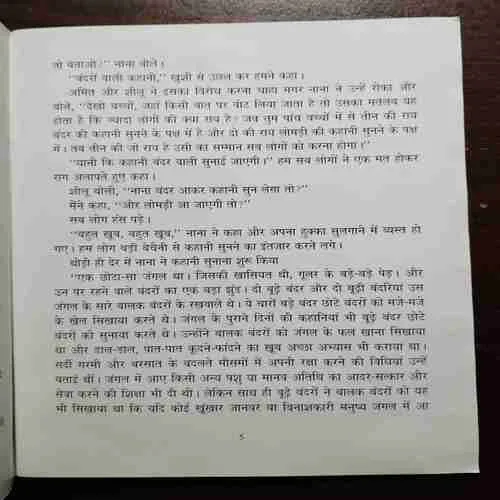 तो बताओ?” नाना बोले।
“बंदरों वाली कहानी,” खुशी से उछल कर हमने कहा।
अमित और शीलू ने इसका विरोध करना चाहा मगर नाना ने उन्हें रोका और
बोले, “देखो बच्चों, जहां किसी बात पर वोट लिया जाता है तो उसका मतलब यह
होता है कि ज्यादा लोगों की क्या राय है। जब तुम पांच बच्चों में से तीन की राय
बंदर की कहानी सुनने के पक्ष में है और दो की राय लोमड़ी की कहानी सुनने के पक्ष
में। तब तीन की जो राय है उसी का सम्मान सब लोगों को करना होगा।”
“यानी कि कहानी बंदर वाली सुनाई जाएगी।” हम सब लोगों ने एक मत होकर
राग अलापते हुए कहा।
शीलू बोली, “नाना बंदर आकर कहानी सुन लेगा तो?”
मैंने कहा, “और लोमड़ी आ जाएगी तो?”
सब लोग हंस पड़े।
“बहुत खूब, बहुत खूब,” नाना ने कहा और अपना हुक्का सुलगाने में व्यस्त हो
गए। हम लोग बड़ी बेचैनी से कहानी सुनने का इंतजार करने लगे।
थोड़ी ही देर में नाना ने कहानी सुनाना शुरू किया
“एक छोटा-सा जंगल था। जिसकी खासियत थी, गूलर के बड़े-बड़े पेड़। और
उन पर रहने वाले बंदरों का एक बड़ा झुंड। दो बूढ़े बंदर और दो बूढ़ी बंदरियां उस
जंगल के सारे बालक बंदरों के रखवाले थे। ये चारों बड़े बंदर छोटे बंदरों को मजे-मजे
के खेल सिखाया करते थे। जंगल के पुराने दिनों की कहानियां भी बूढ़े बंदर छोटे
बंदरों को सुनाया करते थे। उन्होंने बालक बंदरों को जंगल के फल खाना सिखाया
था और डाल-डाल, पात-पात कूदने-फांदने का खूब अच्छा अभ्यास भी कराया था।
सर्दी गरमी और बरसात के बदलते मौसमों में अपनी रक्षा करने की विधियां उन्हें
बताई थीं। जंगल में आए किसी अन्य पशु या मानव अतिथि का आदर-सत्कार और
सेवा करने की शिक्षा भी दी थी। लेकिन साथ ही बूढ़े बंदरों ने बालक बंदरों को यह
भी सिखाया था कि यदि कोई खूंखार जानवर या विनाशकारी मनुष्य जंगल में आ
5